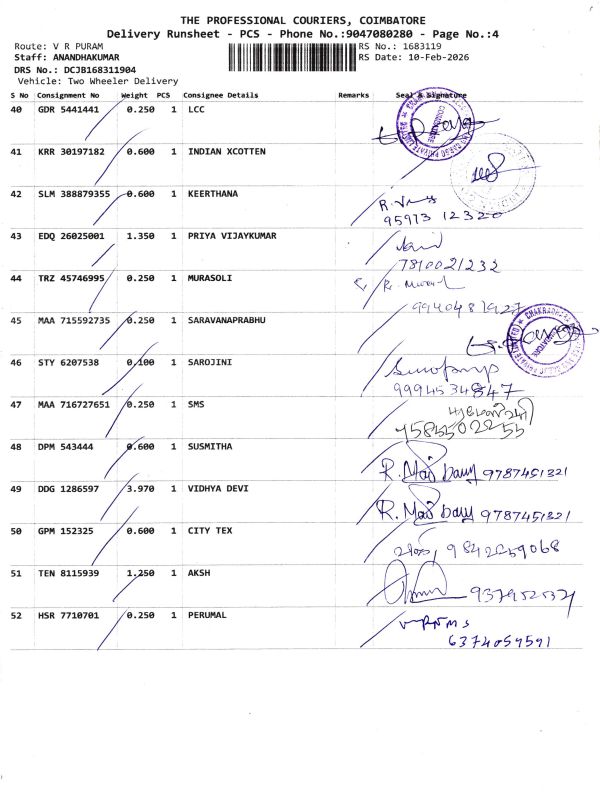 THE PROFESSIONAL COURIERS, COIMBATORE
Delivery Runsheet - PCS - Phone No.:9047080280 - Page No.:4
Route: V R PURAM RS No.: 1683119
Staff: ANANDHAKUMAR RS Date: 10-Feb-2026
DRS No.: DCJB168311904
Vehicle: Two Wheeler Delivery
S No Consignment No Weight PCS Consignee Details Remarks Seal & Signature
40 GDR 5441441 0.250 1 LCC
41 KRR 30197182 0.600 1 INDIAN XCOTTEN
42 SLM 388879355 0.600 1 KEERTHANA
95973 12320
43 EDQ 26025001 1.350 1 PRIYA VIJAYKUMAR
7810021232
44 TRZ 45746995 0.250 1 MURASOLI
9940481927
45 MAA 715592735 0.250 1 SARAVANAPRABHU
46 STY 6207538 0.100 1 SAROJINI
9994534847
47 MAA 716727651 0.250 1 SMS
48 DPM 543444 0.600 1 SUSMITHA
9787451321
49 DDG 1286597 3.970 1 VIDHYA DEVI
9787451321
50 GPM 152325 0.600 1 CITY TEX
9842259068
51 TEN 8115939 1.250 1 AKSH
52 HSR 7710701 0.250 1 PERUMAL
6374059591